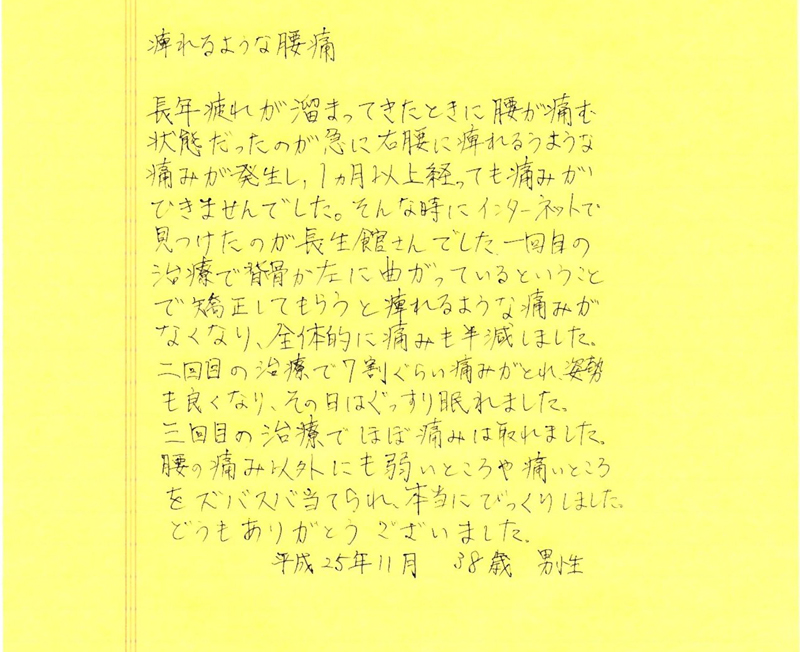 痺れるような腰痛
長年疲れが溜まってきたときに腰が痛む
状態だったのが急に右腰に痺れるうような
痛みが発生し、1ヵ月以上経っても痛みが
ひきませんでした。そんな時にインターネットで
見つけたのが長生館さんでした。一回目の
治療で背骨が左に曲がっているということ
で矯正してもらうと痺れるような痛みが
なくなり、全体的に痛みも半減しました。
二回目の治療で7割ぐらい痛みがとれ、姿勢
も良くなり、その日はぐっすり眠れました。
三回目の治療でほぼ痛みは取れました。
腰の痛み以外にも弱いところや痛いところ
をズバズバ当てられ、本当にびっくりしました。
どうもありがとうございました。
平成25年11月 38歳 男性